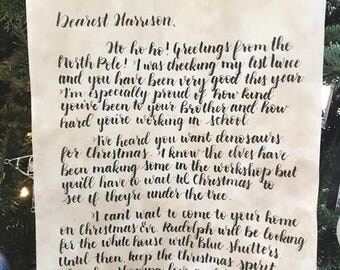 Dearest Harrison,
Ho ho ho! Greetings from the
North Pole! I was checking my list twice
and you have been very good this year
I'm especially proud of how kind
you've been to your Brother and how
hard you're working in school.
I've heard you want dinosaurs
for Christmas. I know the elves have
been making some in the workshop but
you'll have to wait til Christmas to
see if they're under the tree.
I can't wait to come to your home
on Christmas Eve. Rudolph will be looking
for the white house with Blue shutters.
Until then, keep the Christmas spirit